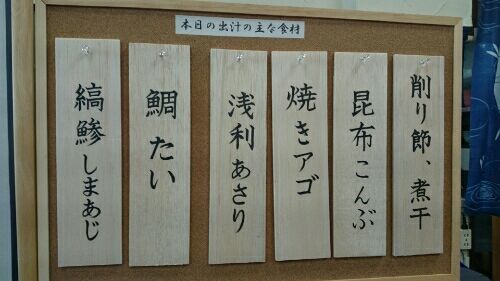 本日の出汁の主な食材
削り節、煮干
昆布こんぶ
焼きアゴ
浅利あさり
鯛たい
縞鯵しまあじ